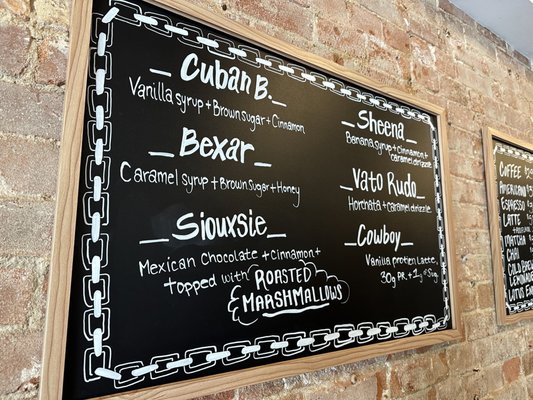 Cuban B.
Vanilla syrup + Brown sugar + Cinnamon
Bexar
Caramel syrup + Brown Sugar + Honey
Siouxsie
Mexican Chocolate + Cinnamon +
topped with ROASTED
MARSHMALLOWS
Sheena
Banana syrup + cinnamon +
caramel drizzle
Vato Rudo
Horchata + caramel drizzle
Cowboy
Vanilla protien Latte,
30g PR. + 1g Sug.
COFFEE
AMERICANO
ESPRESSO
LATTE
MATCHA
CHAI
COLD BREW
LEMONADE
LOTUS ENE